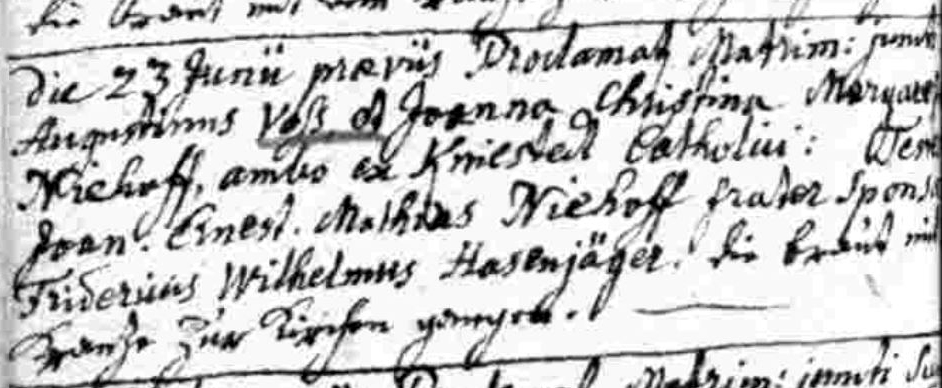 die braut mit dem
Die 23 Junii prævÿs Proclamat Matrim: juncti
Augustinus Voß et Joanna Christina Margaret
Niehoff, ambo ex Kniestedt Catholici: Tem
Joan. Ernest. Mathias Niehoff frater Spons
Fridericus Wilhelmus Hasenjäger. die braut mit
Kranze zur Kirchen gangen.
Matrim: juncti